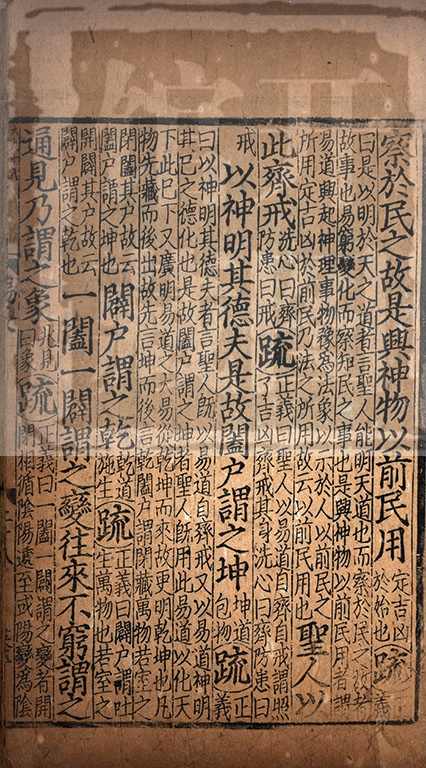 察於民之故是興神物以前民用定吉凶於始也疏正義
曰是以明於天之道者言聖人能明天道也而察於民之故者
故事也易窮變化而察知民之事也是興神物以前民用者謂
易道興起神理事物豫為法象以示於人以前民之
所用定吉凶於前民乃法之所用故云以前民用也聖人以
此齊戒洗心曰齊防患曰戒疏正義曰聖人以易道自齊自戒謂照了吉凶齊戒其身洗心曰齊防患曰
戒以神明其德夫是故闔戶謂之坤坤道包物疏正義
曰以神明其德夫者言聖人既以易道自齊戒又以易道神明
其已之德化也是故闔戶謂之坤者聖人既用此易道以化天
下此已下又廣明易道之大易從乾坤而來故更明乾坤也凡
物先藏而後出故先言坤而後言乾闔戶謂閉藏萬物若室之
閉闔其戶故云闔戶謂之坤也闢戶謂之乾乾道施生疏正義曰闢戶謂吐生萬物也若室之
開闢其戶故云闢戶謂之乾也一闔一闢謂之變往來不窮謂之
通見乃謂之象兆見曰象疏正義曰一闔一闢謂之變者開閉相循陰陽遞至或陽變為陰